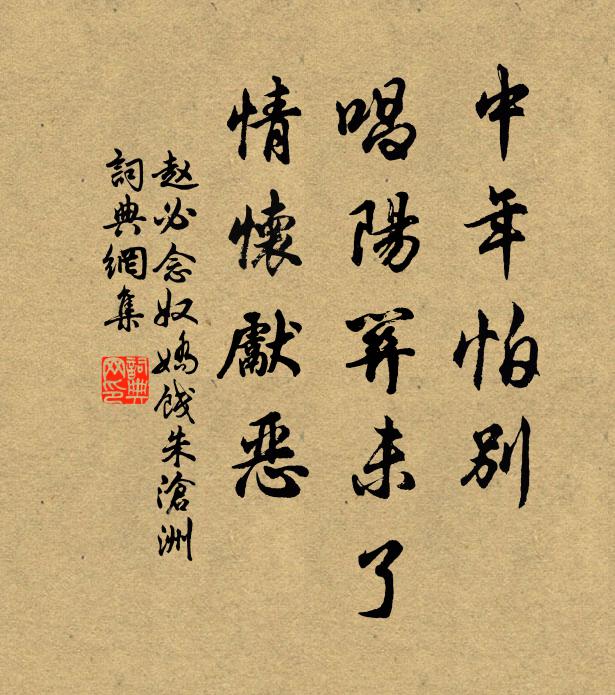 中年怕別
唱陽關未了
情懷獻惡
赵必念奴嬌餞朱滄洲
詞典網集
詞典網印